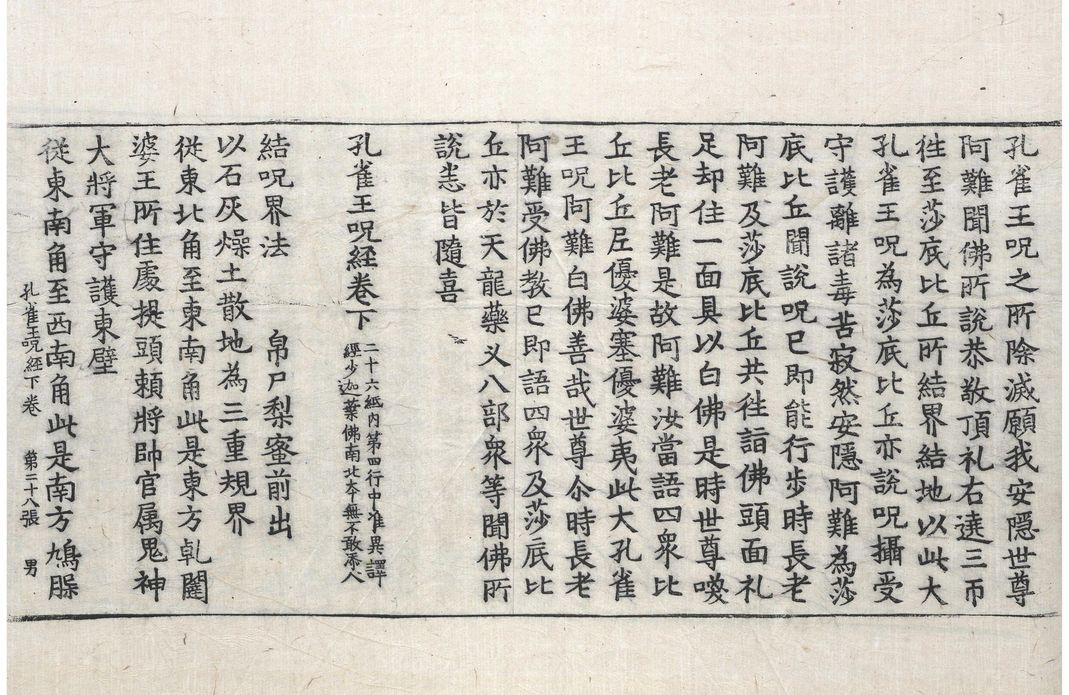 孔雀王呪之所除滅願我安隱世尊
阿難聞佛所說恭敬頂礼右遶三帀
往至莎底比丘所結界結地以此大
孔雀王呪為莎底比丘亦說呪攝受
守護離諸毒苦寂然安隱阿難為莎
底比丘聞說呪已即能行步時長老
阿難及莎底比丘共往詣佛頭面礼
足却住一面具以白佛是時世尊
長老阿難是故阿難汝當語四衆比
丘比丘尼優婆塞優婆夷此大孔雀
王呪阿難白佛善哉世尊尒時長老
阿難受佛教已即語四衆及莎底比
丘亦於天龍藥叉八部衆等聞佛所
說悉皆隨喜
孔雀王呪經卷下
二十六紙內第四行中准異譯
經少迦葉佛南北本無不敢添入
結呪界法　帛尸梨蜜前出
以石灰燥土散地為三重規界
從東北角至東南角此是東方乹闥
婆王所住處提頭賴將帥官属鬼神
大將軍守護東壁
從東南角至西南角此是南方鳩
孔雀王呪經下卷　第二十八張　男